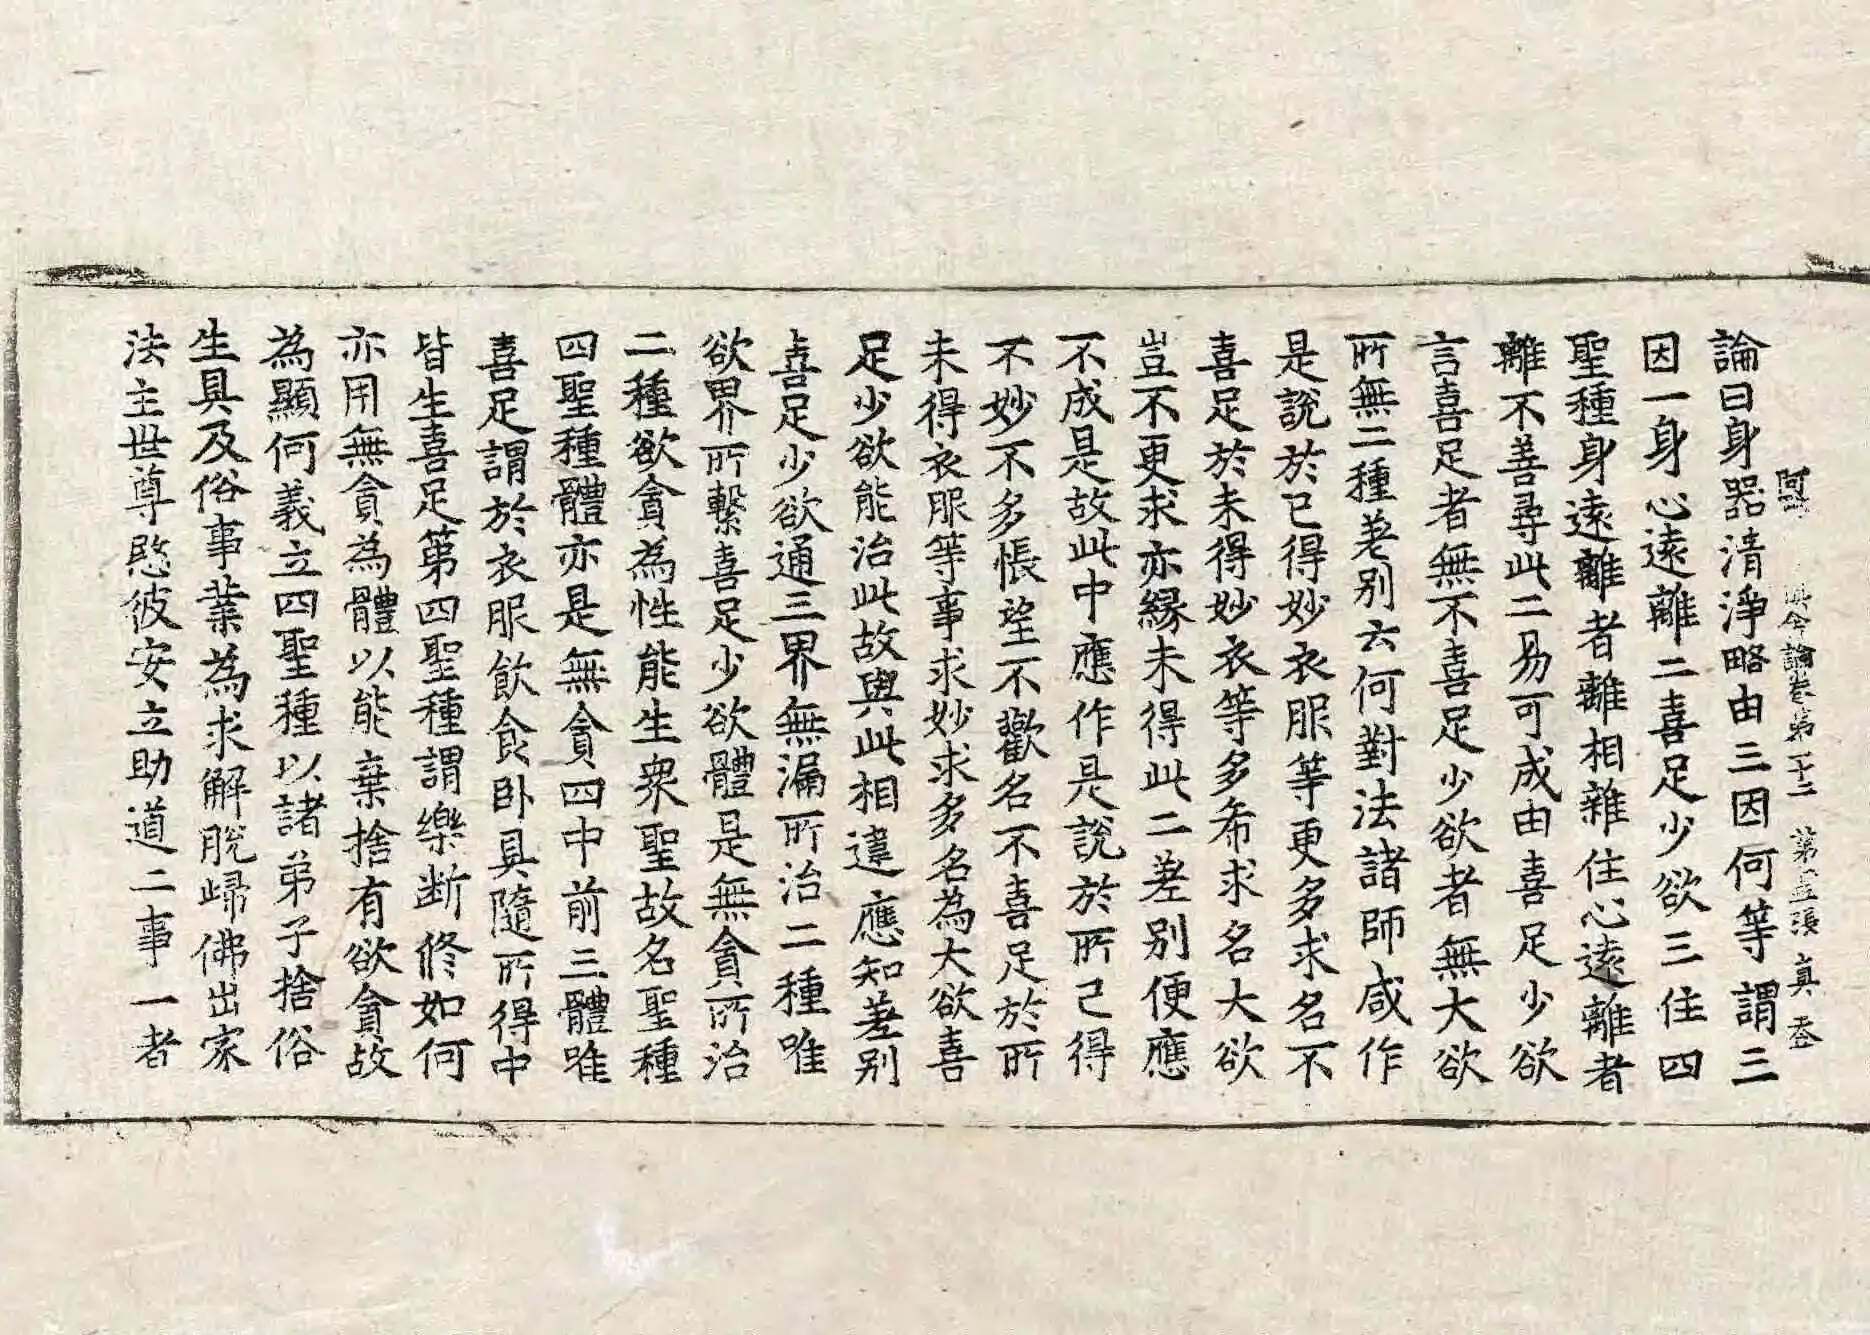 阿毗 俱舍論卷第二十二 第五張 真
論曰身器清淨略由三因何等謂三
因一身心遠離二喜足少欲三住四
聖種身遠離者離相雜住心遠離者
離不善尋此二易可成由喜足少欲
言喜足者無不喜足少欲者無大欲
所無二種差别云何對法諸師咸作
是說於已得妙衣服等更多求名不
喜足於未得妙衣等多希求名大欲
豈不更求亦緣未得此二差别便應
不成是故此中應作是說於所已得
不妙不多悵望不歡名不喜足於所
未得衣服等事求妙求多名為大欲喜
足少欲能治此故與此相違應知差别
喜足少欲通三界無漏所治二種唯
欲界所繫喜足少欲體是無貪所治
二種欲貪為性能生衆聖故名聖種
四聖種體亦是無貪四中前三體唯
喜足謂於衣服飲食卧具隨所得中
皆生喜足第四聖種謂樂断修如何
亦用無貪為體以能棄捨有欲貪故
為顯何義立四聖種以諸弟子捨俗
生具及俗事業為求解脫歸佛出家
法主世尊愍彼安立助道二事一者